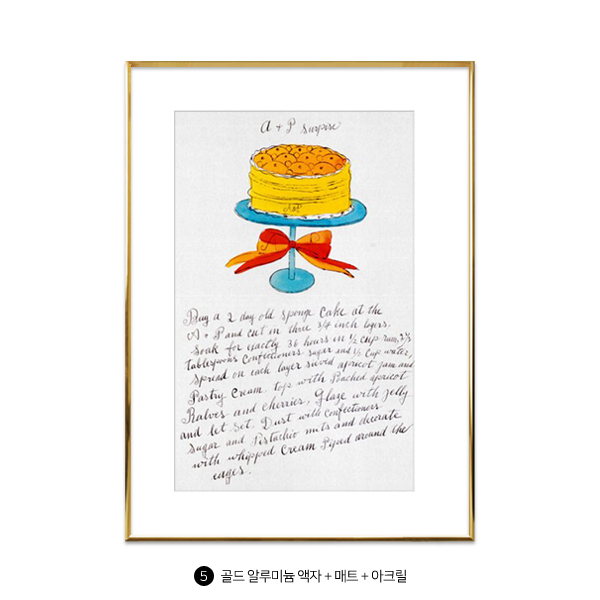 A + P Surprise
A&P
Buy a 2 day old sponge cake at the
A + P and cut in three 3/4 inch layers.
Soak for exactly 36 hours in ½ cup rum,
tablespoons Confectioners sugar and ⅓ cup water,
spread on each layer sieved apricot jam and
Pastry Cream. top with Poached apricot
Halves and cherries, Glaze with jelly
and let set. Dust with Confectioners
sugar and Pistachio nuts and decorate
with whipped Cream Piped around the
edges.
5 골드 알루미늄 액자 + 매트 + 아크릴